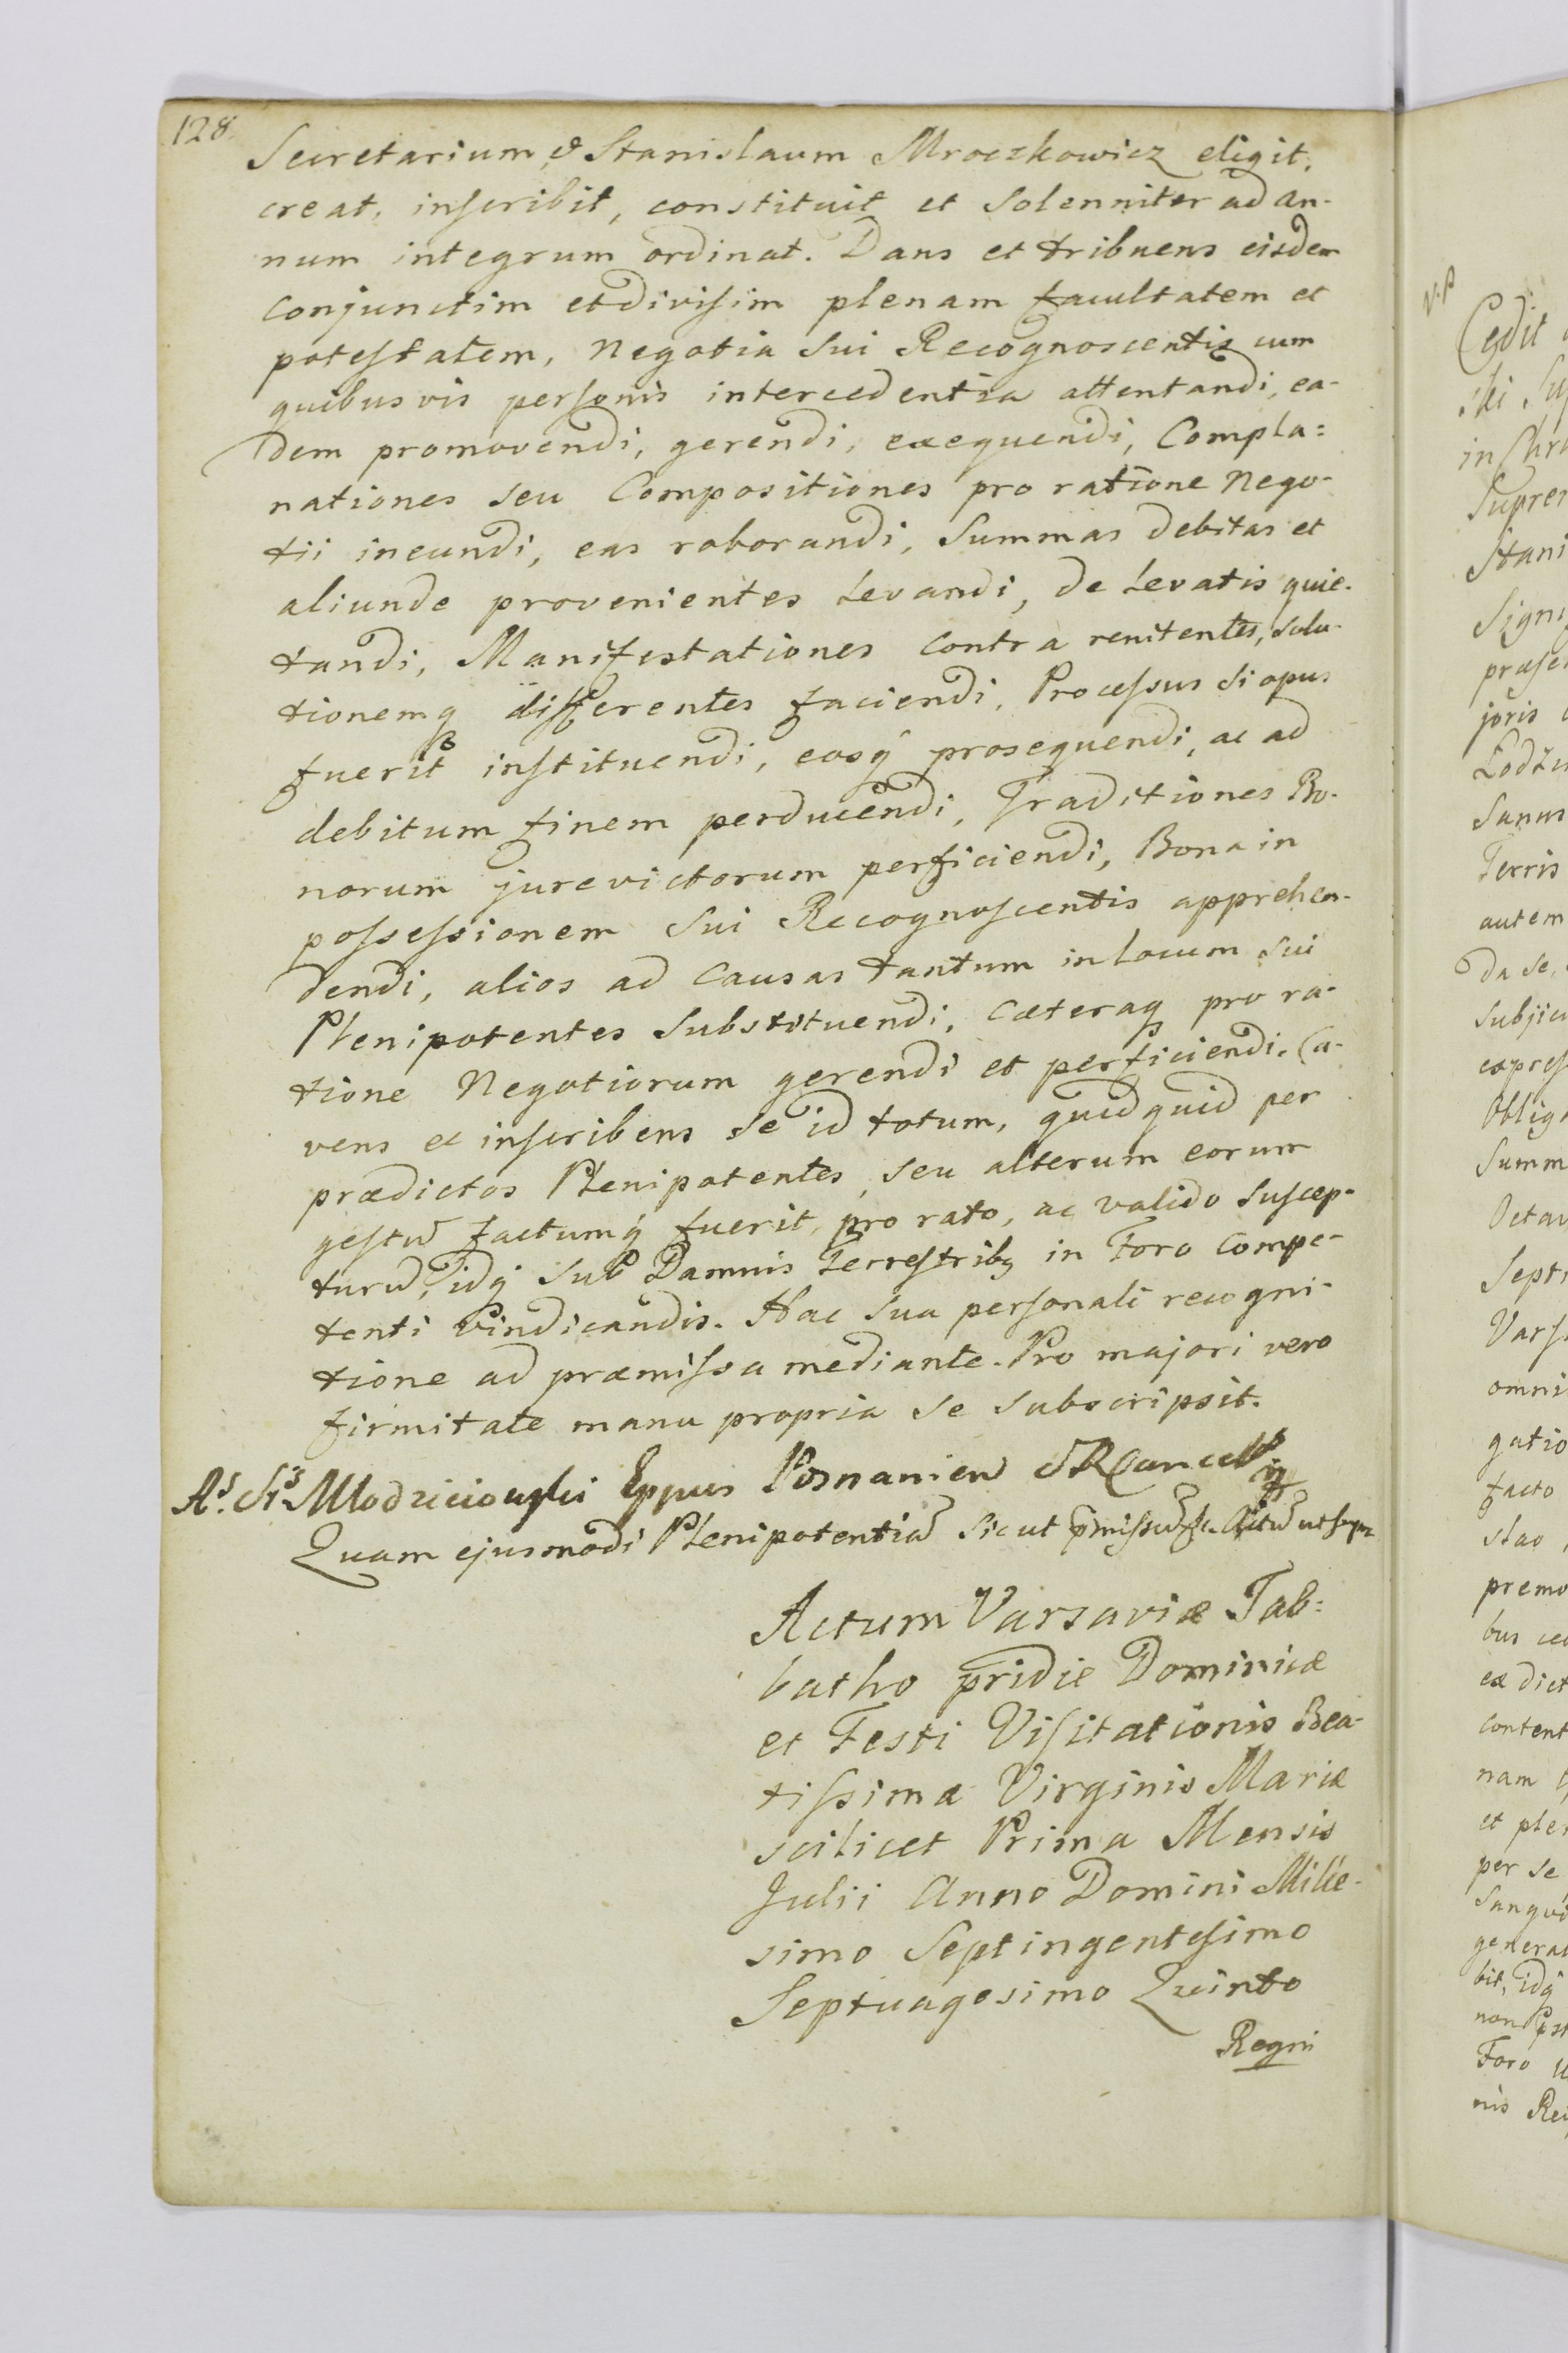 128.
Secretarium, & Stanislaum Mroczkowicz eligit,
creat, inscribit, constituit et Solenniter ad an-
num integrum ordinat. Dans et tribuens eisdem
conjunctim et divisim plenam facultatem et
potestatem, Negotia sui Recognoscentis cum
quibusvis personis intercedentia attentandi, ea-
dem promovendi, gerendi, exequendi, Compla=
nationes seu Compositiones pro ratione Nego-
tii ineundi, eas roborandi, Summas debitas et
aliunde provenientes Levandi, de Levatis quie-
tandi, Manifestationes contra renitentes, solu-
tionemq differentes faciendi, Processus si opus
fuerit instituendi, eosq prosequendi, ac ad
debitum finem perducendi, Traditiones Bo-
norum jurevictorum perficiendi, Bona in
possessionem sui Recognoscentis apprehen-
dendi, alios ad Causas tantum in Locum sui
Plenipotentes Substituendi, Cæteraq pro ra-
tione Negotiorum gerendi et perficiendi. Ca-
vens et inscribens se id totum, quidquid per
prædictos Plenipotentes, seu alterum eorum
gestu factumq fuerit, pro rato, ac valido suscep-
turu, idq sub Damnis Terrestribq in Foro Compe-
tenti vindicandis. Hac sua personali recogni-
tione ad præmissa mediante. Pro majori vero
firmitate manu propria se subscripsit.
As. Sis Mlodzieiouski Eppus Posnanien SR Cancell
Quam ejusmodi Plenipotentia sicut pmissu Actu ut supr
Actum Varsaviæ Sab=
batho pridie Dominicæ
et Festi Visitationis Bea-
tissimæ Virginis Mariæ
scilicet Prima Mensis
Julii Anno Domini Mille-
simo Septingentesimo
Septuagesimo Quinto
Regni
Cedit
ski Sup
in Chr
Supre
Stani
Sign
præse
joris
Sanus
Terris
autem
da se,
subjic
expres
Oblig
Summ
Octav
Sept
Vars
omni
gatio
facto
slao
premo
bus
ex dict
content
nam
et ple
per se
Sangvi
genera
bit, idq
non
Foro
nis Re